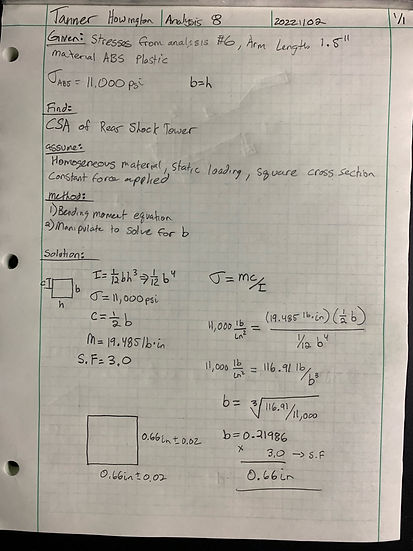 Tanner Howington | Analysis 8 | 20221102 | 1/1
Given: Stresses from analysis #6, Arm Length 1.5"
material ABS Plastic
σABS = 11,000 psi b=h
Find:
CSA of Rear Shock Tower
assume:
Homogeneous material, Static loading, square cross section
Constant force applied
method:
1) Bending moment equation
2) Manipulate to solve for b
Solution:
c b h
I = 1/12 bh³ ⇒ 1/12 b⁴
σ = 11,000 psi
C = 1/2 b
M = 19.485 lb·in
S.F = 3.0
σ = mc/I
11,000 lb/in² = (19.485 lb·in)(1/2 b) / 1/12 b⁴
11,000 lb/in² = 116.91 lb/b³
b = ³√116.91/11,000
b = 0.21986
× 3.0 → S.F
0.66 in
0.66in ± 0.02
0.66in ± 0.02